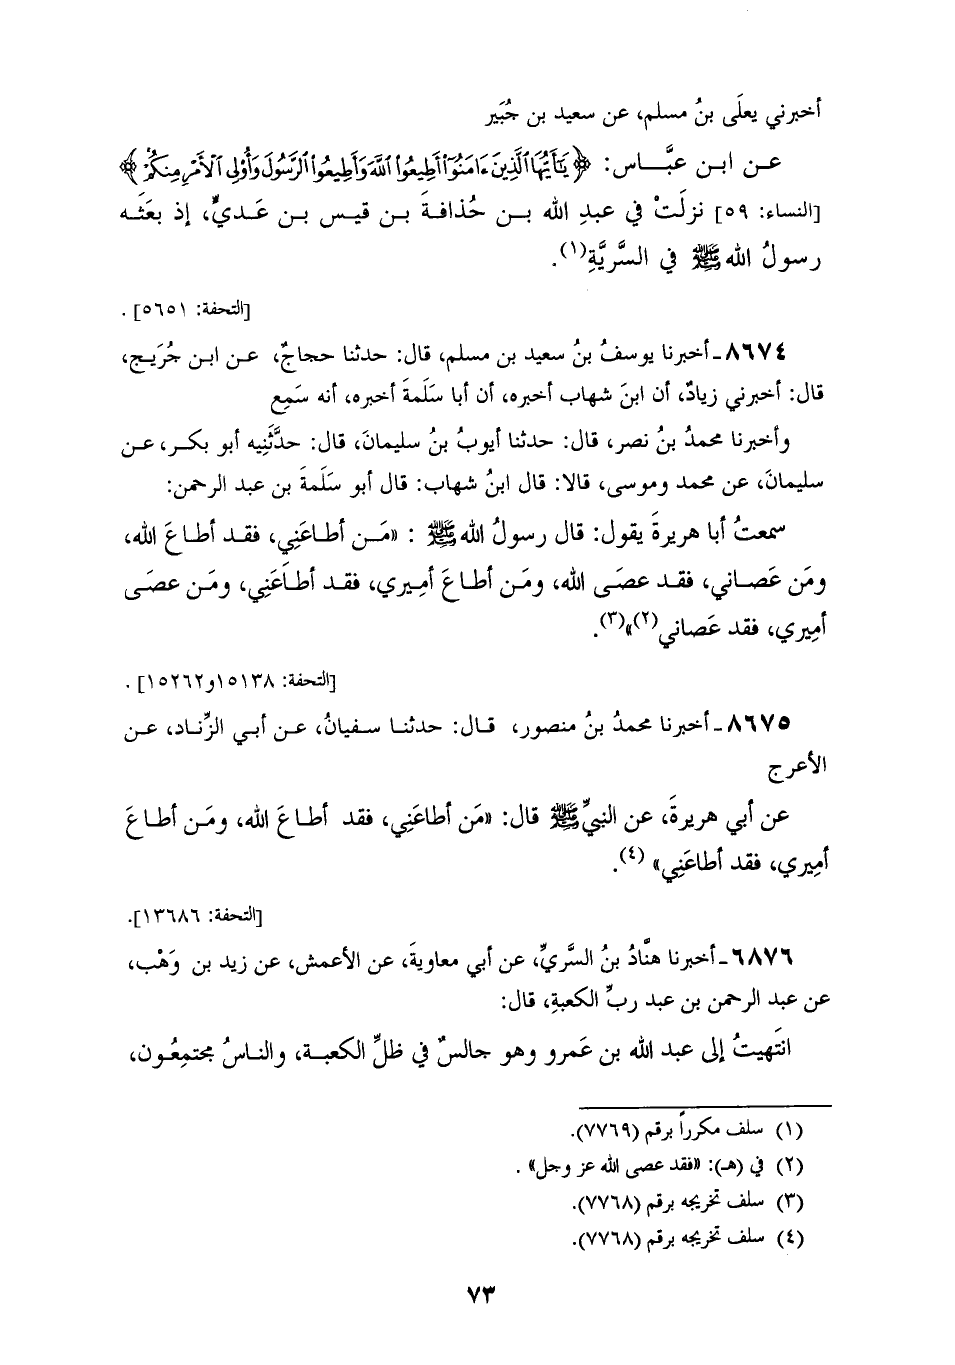 أخبرني يعلَى بنُ مسلم، عن سعيد بن جُبَير
عـن ابـن عبَّـــاس: ﴿يَٰٓأَيُّهَا ٱلَّذِينَ ءَامَنُوٓا۟ أَطِيعُوا۟ ٱللَّهَ وَأَطِيعُوا۟ ٱلرَّسُولَ وَأُو۟لِى ٱلْأَمْرِ مِنكُمْ﴾
[النساء: ٥٩] نزلَتْ في عبدِ الله بـن حُذافـةَ بـن قيس بـن عَـديٍّ، إذ بعَثَـه
رسولُ الله ﷺ في السَّريَّةِ(١).
[التحفة: ٥٦٥١] .
٨٦٧٤ـ أخبرنا يوسفُ بنُ سعيد بن مسلم، قال: حدثنا حجاجٌ، عـن ابـن جُرَيـج،
قال: أخبرني زيادٌ، أن ابنَ شهاب أخبره، أن أبا سَلَمةَ أخبره، أنه سَمِع
وأخبرنا محمدُ بنُ نصر، قال: حدثنا أيوبُ بنُ سليمانَ، قال: حدَّثَنِيه أبو بكـر، عـن
سليمانَ، عن محمد وموسى، قالا: قال ابنُ شهاب: قال أبو سَلَمةَ بن عبد الرحمن:
سمعتُ أبا هريرةَ يقول: قال رسولُ الله ﷺ : «مَـن أطـاعَنِي، فقـد أطـاعَ الله،
ومَن عَصـاني، فقـد عصَـى الله، ومَـن أطـاعَ أمِـيري، فقـد أطـاعَنِي، ومَـن عصَـى
أمِيري، فقد عَصاني(٢)»(٣).
[التحفة: ١٥١٣٨و١٥٢٦٢] .
٨٦٧٥ ـ أخبرنا محمدُ بنُ منصور، قـال: حدثنـا سـفيانُ، عـن أبـي الزِّنـاد، عـن
الأعرج
عن أبي هريرةَ، عن النبيِّ ﷺ قال: «مَن أطاعَنِي، فقد أطـاعَ الله، ومَـن أطـاعَ
أمِيري، فقد أطاعَنِي» (٤).
[التحفة: ١٣٦٨٦].
٦٨٧٦ـ أخبرنا هنَّادُ بنُ السريِّ، عن أبي معاويةَ، عن الأعمش، عن زيد بن وَهْب،
عن عبد الرحمن بن عبد ربِّ الكعبةِ، قال:
انتَهيتُ إلى عبد الله بن عَمرو وهو جالسٌ في ظلِّ الكعبـة، والنـاسُ مجتمِعُـون،
(١) سلف مكرراً برقم (٧٧٦٩).
(٢) في (هـ): «فقد عصى الله عز وجل» .
(٣) سلف تخريجه برقم (٧٧٦٨).
(٤) سلف تخريجه برقم (٧٧٦٨).
٧٣